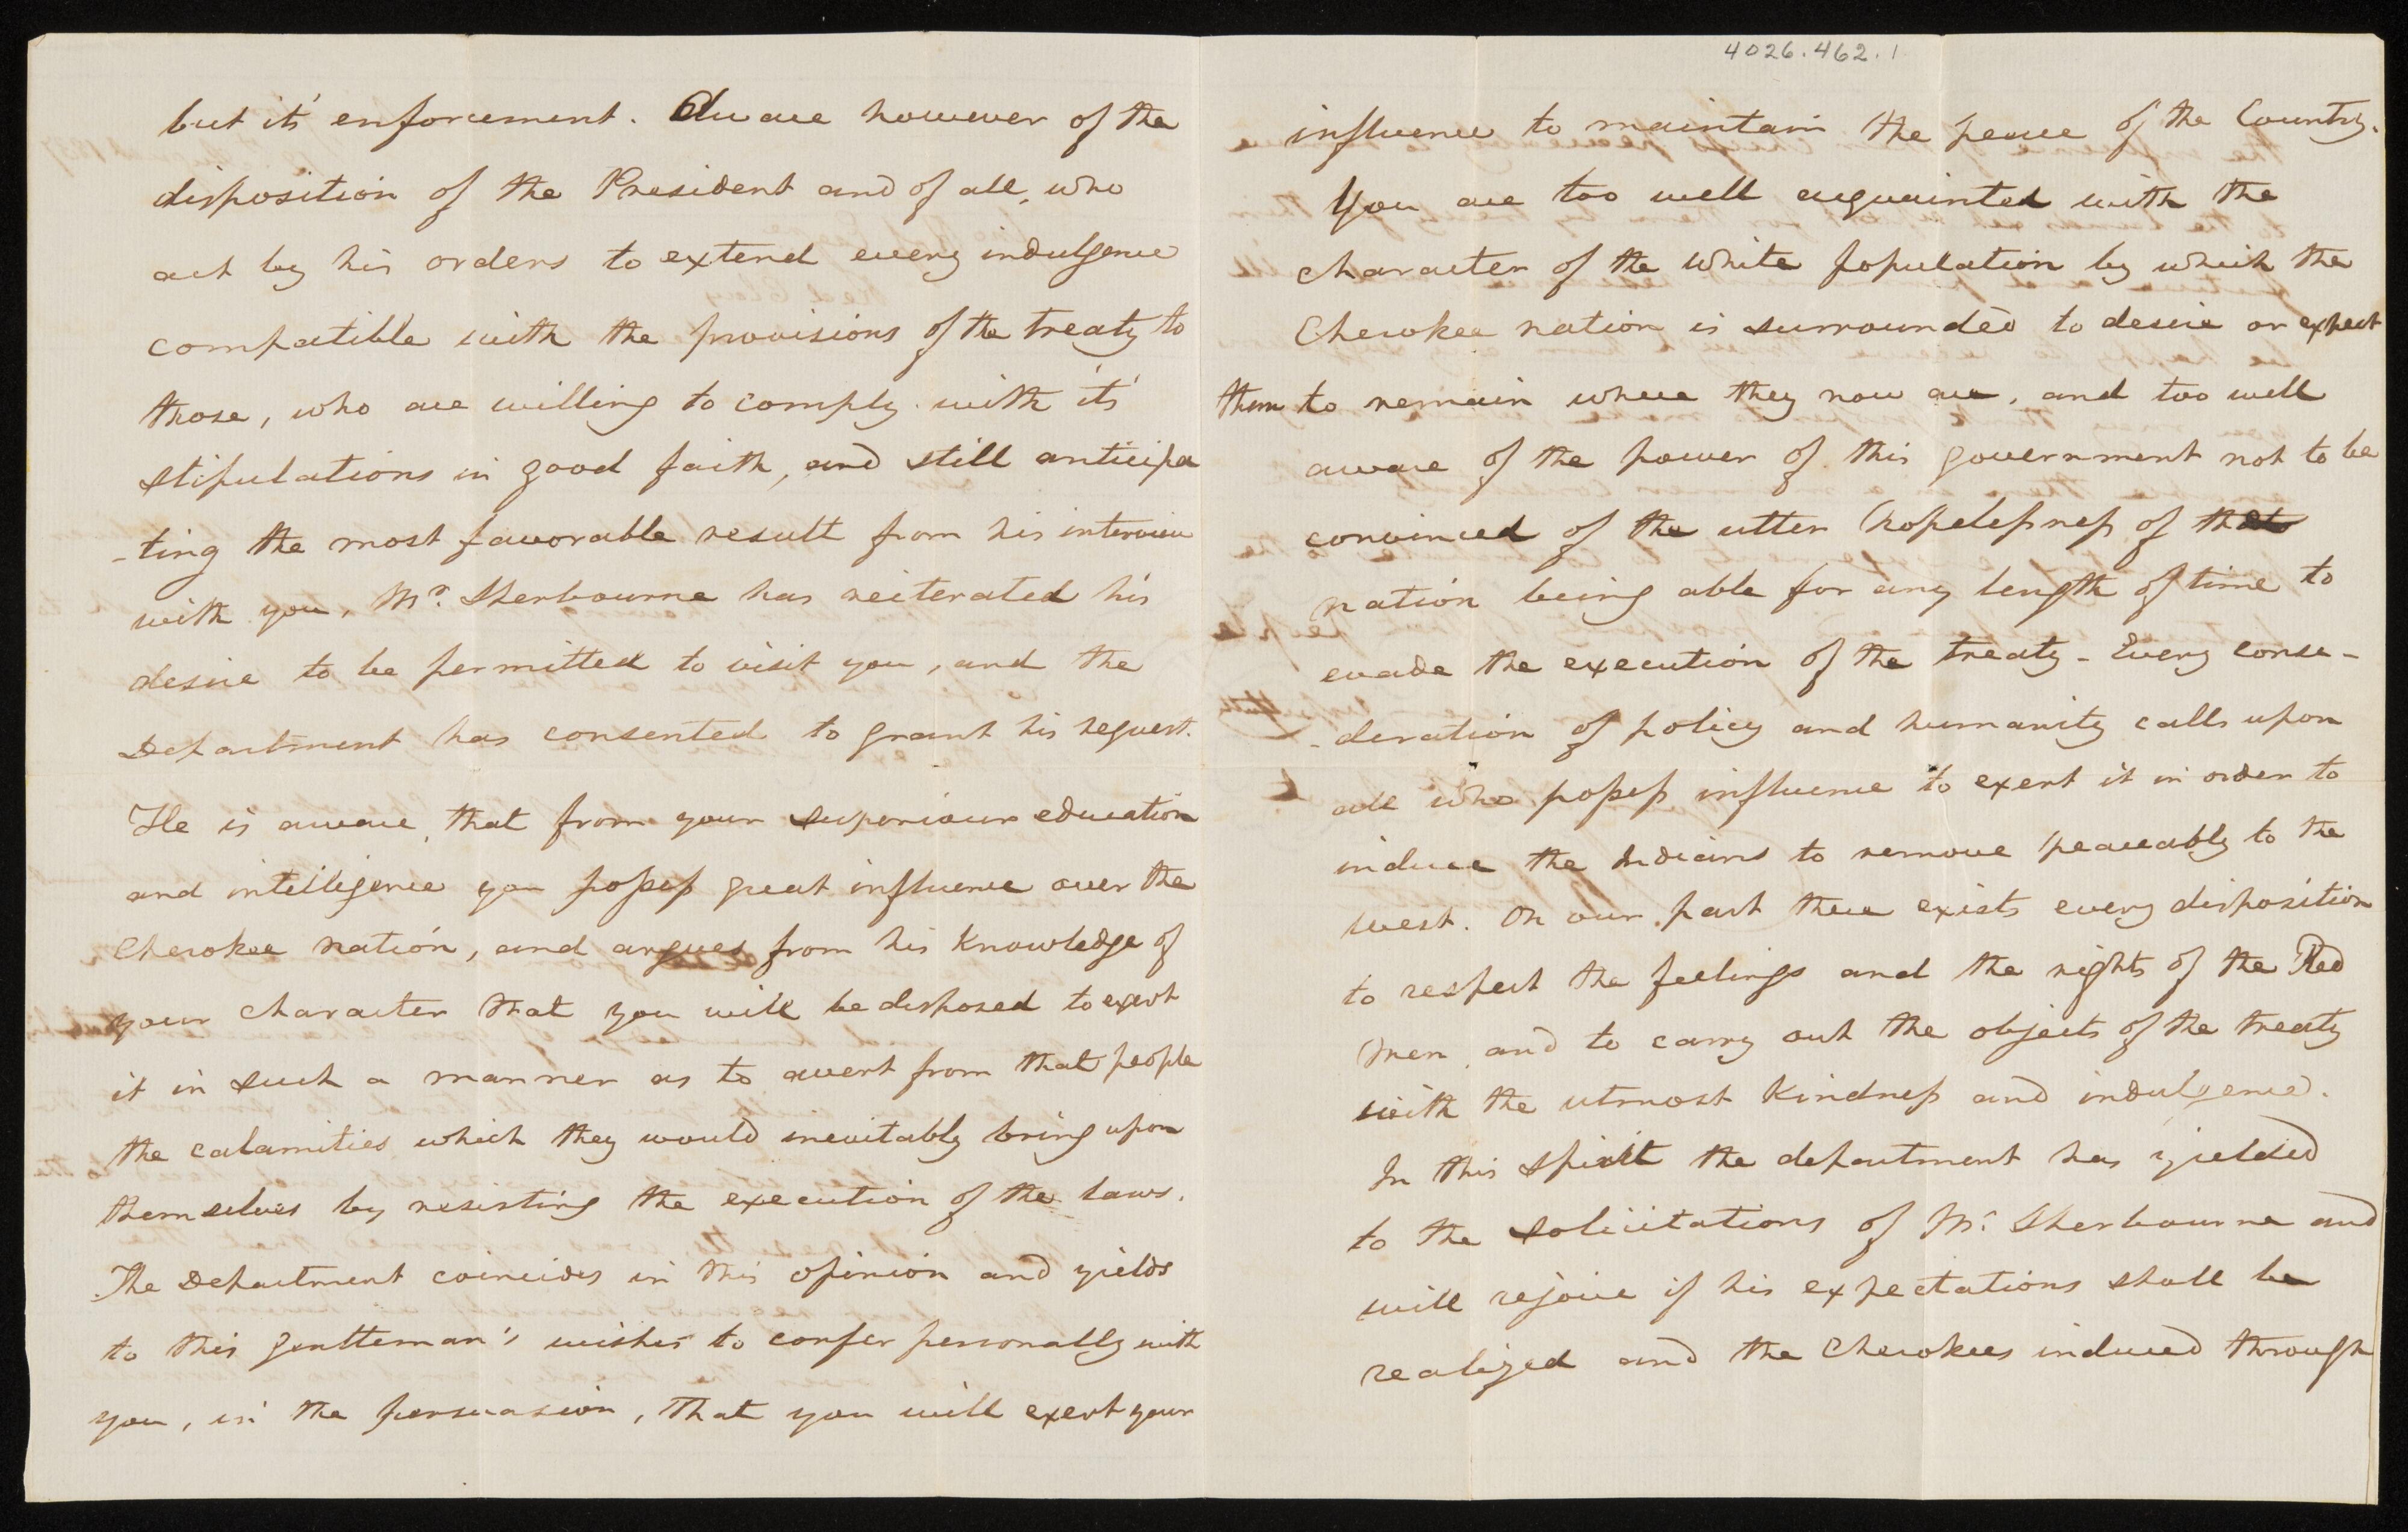 but it's enforcement. Aware however of the
disposition of the President and of all, who
act by his orders to extend every indulgence
compatible with the provisions of the treaty to
those, who are willing to comply with it's
stipulations in good faith, and still anticipa
-ting the most favorable result from his interview
with you, Mr. Sherbourne has reiterated his
desire to be permitted to visit you, and the
Department has consented to grant his request.
He is aware, that from your superiour education
and intelligence you possess great influence over the
Cherokee nation, and argues from his knowledge of
your character that you will be disposed to exert
it in such a manner as to avert from that people
the calamities which they would inevitably bring upon
themselves by resisting the execution of the laws.
The Department coincides in this opinion and yields
to this gentleman's wishes to confer personally with
you, in the persuasion, that you will exert your
4026.462.1
influence to maintain the peace of the Country.
You are too well acquainted with the
character of the white population by which the
Cherokee nation is surrounded to desire or expect
them to remain where they now are, and too well
aware of the power of this government not to be
convinced of the utter hopelessness of that
nation being able for any length of time to
evade the execution of the treaty - Every conse-
-deration of policy and humanity calls upon
all who possess influence to exert it in order to
induce the Indians to remove peaceably to the
west. On our part there exists every disposition
to respect the feelings and the rights of the Red
men and to carry out the objects of the treaty
with the utmost kindness and indulgence.
In this spirit the department has yielded
to the solicitations of Mr. Sherbourne and
will rejoice if his expectations shall be
realized and the Cherokees induced through